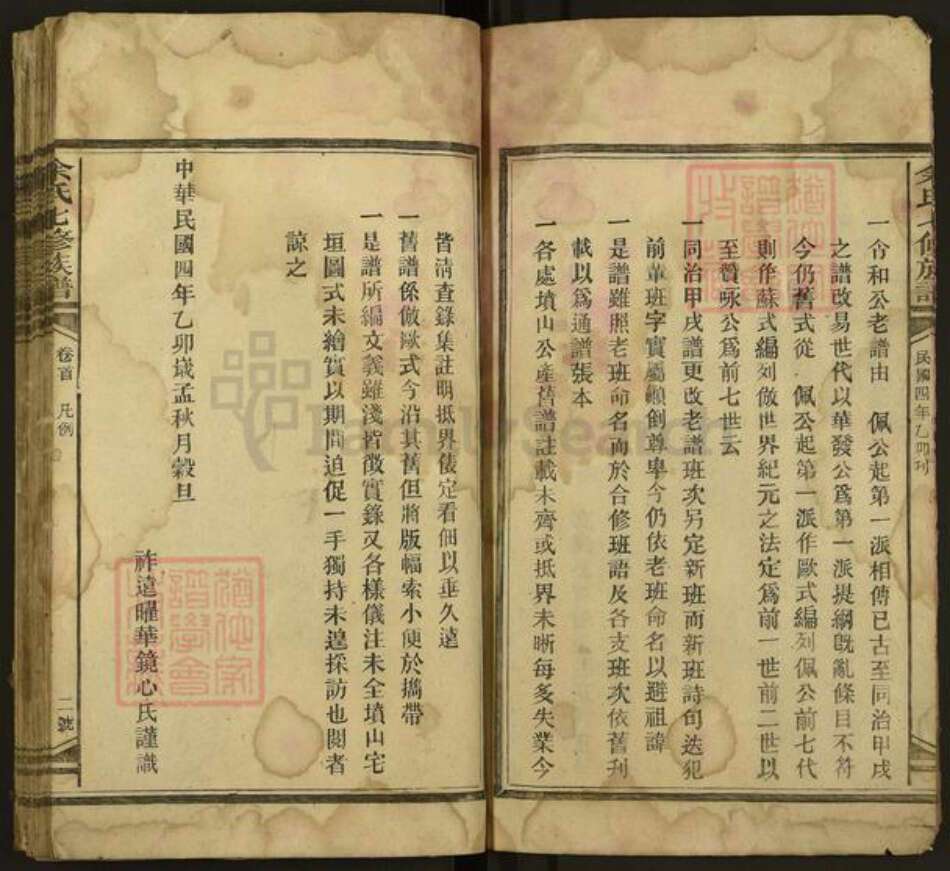 民國四年乙卯刊
一佾和公老譜由 佩公起第一派相傳已古至同治甲戌
之譜改易世代以華發公爲第一派提綱旣亂條目不符
今仍舊式從 佩公起第一派作歐式編列佩公前七代
則作蘇式編列倣世界紀元之法定爲前一世前二世以
至贊咏公爲前七世云
一同治甲戌譜更改老譜班次另定新班而新班詩句迭犯
前輩班字實屬顚倒尊卑今仍依老班命名以避祖諱
一是譜雖照老班命名而於合修班語及各支班次依舊刊
載以爲通譜張本
一各處墳山公產舊譜註載未齊或抵界未晰每多失業今
皆清查錄集註明抵界俵定看佃以垂久遠
一舊譜係倣歐式今沿其舊但將版幅索小便於攜帶
一是譜所編文義雖淺皆徵實錄又各樣儀注未全墳山宅
垣圖式未繪實以期間迫促一手獨持未遑採訪也閱者
諒之
中華民國四年乙卯歲孟秋月穀旦
祚遠曜華鏡心氏謹識
余氏七修族譜
卷首 凡例
二號
FamilySearch